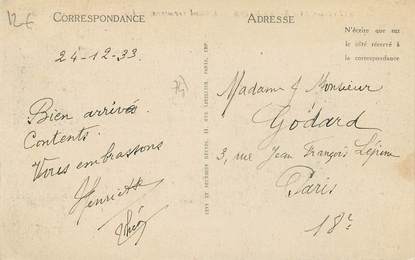 12€
CORRESPONDANCE
24-12-33
Bien arrivés.
Contents.
Vous embrassons
Henriette
Théo
ADRESSE
N'écrire que sur
le côté réservé à
la correspondance
Madame & Monsieur
Godard
3, rue Jean François Lépine
Paris
18e